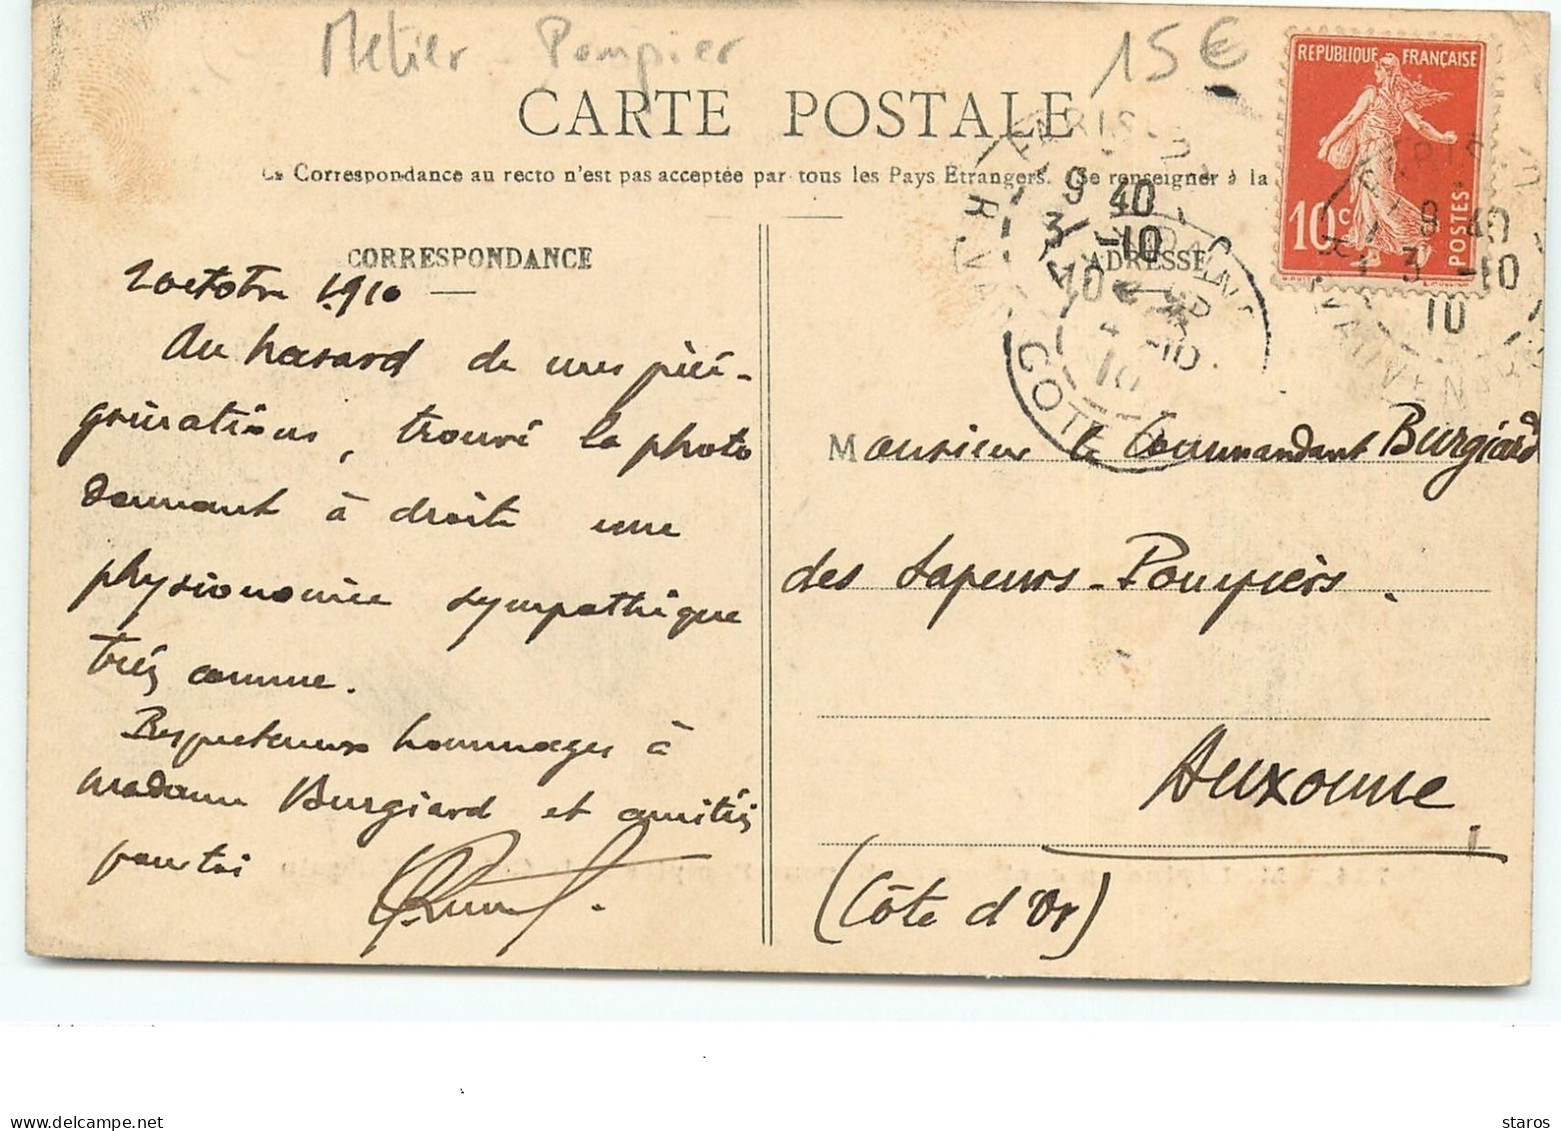 Metier - Pompier
15€
REPUBLIQUE FRANÇAISE
10c
POSTES
CARTE POSTALE
La Correspondance au recto n'est pas acceptée par tous les Pays Étrangers. (Se renseigner à la
CORRESPONDANCE
2 octobre 1910
Au hasard de mes péré-
grinations, trouvé la photo
donnant à droite une
physionomie sympathique
très connue.
Respectueux hommages à
madame Burgiard et amitiés
pour toi
ADRESSE
PARIS
R. VAUVENARGUES
9 40
3 -10
10
COTE
Monsieur le Commandant Burgiard
des Sapeurs-Pompiers.
Auxonne
(Côte d'Or)
delcampe.net
staros